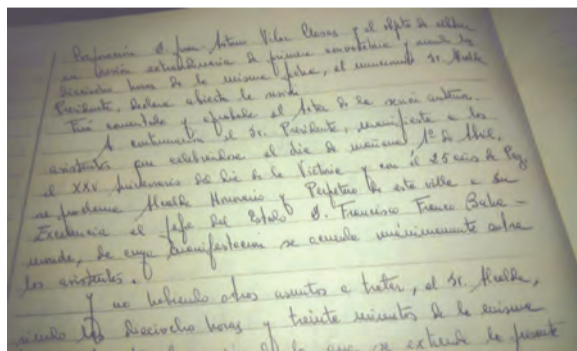 Corporación D. Juan Antonio Vilar Llavas y al objeto de celebrar
en sesión extraordinaria de primera convocatoria y siendo las
dieciocho horas de la misma fecha, el mencionado Sr. Alcalde
Presidente, declara abierta la sesión.
Fué comentado y aprobado el Acta de la sesión anterior.
A continuación el Sr. Presidente, manifiesta a los
asistentes que celebrandose el día de mañana, 1º de Abril,
el XXV Aniversario del día de la Victoria y con él 25 años de Paz,
se proclama Alcalde Honorario y Perpetuo de esta villa a Su
Excelencia el Jefe del Estado D. Francisco Franco Baha-
monde, de cuya manifestación se acuerda unánimemente entre
los asistentes.
Y no habiendo otros asuntos a tratar, el Sr. Alcalde,
siendo las dieciocho horas y treinta minutos de la misma
de lo que se extiende la presente